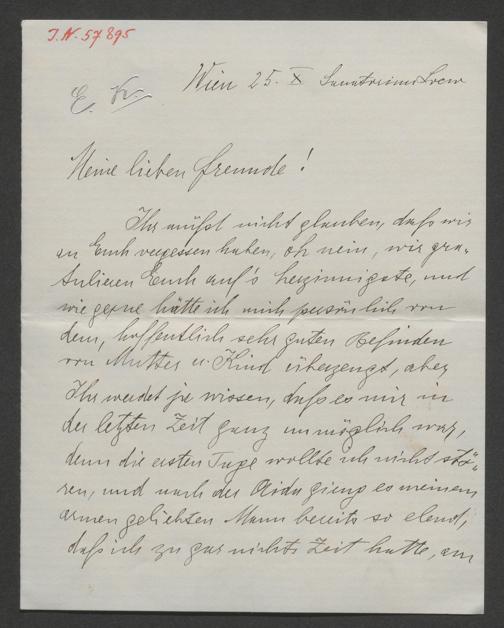 J.N. 57895
Wien 25. X Sanatorium Loew
E. Kr.
Meine lieben Freunde!
Ihr müßt nicht glauben, daß wir
an Euch vergessen haben, oh nein, wir gra-
tulieren Euch auf's herzinnigste, und
wie gerne hätte ich mich persönlich von
dem, hoffentlich sehr guten Befinden
von Mutter u. Kind überzeugt, aber
Ihr werdet ja wissen, daß es mir in
der letzten Zeit ganz unmöglich war,
denn die ersten Tage wollte ich nicht stö-
ren, und nach der Aida gieng es meinem
armen geliebten Mann bereits so elend,
daß ich zu gar nichts Zeit hatte, am